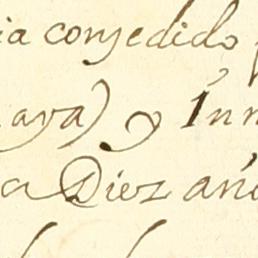 ia conzedido
aya) y Inn
a Diez añ